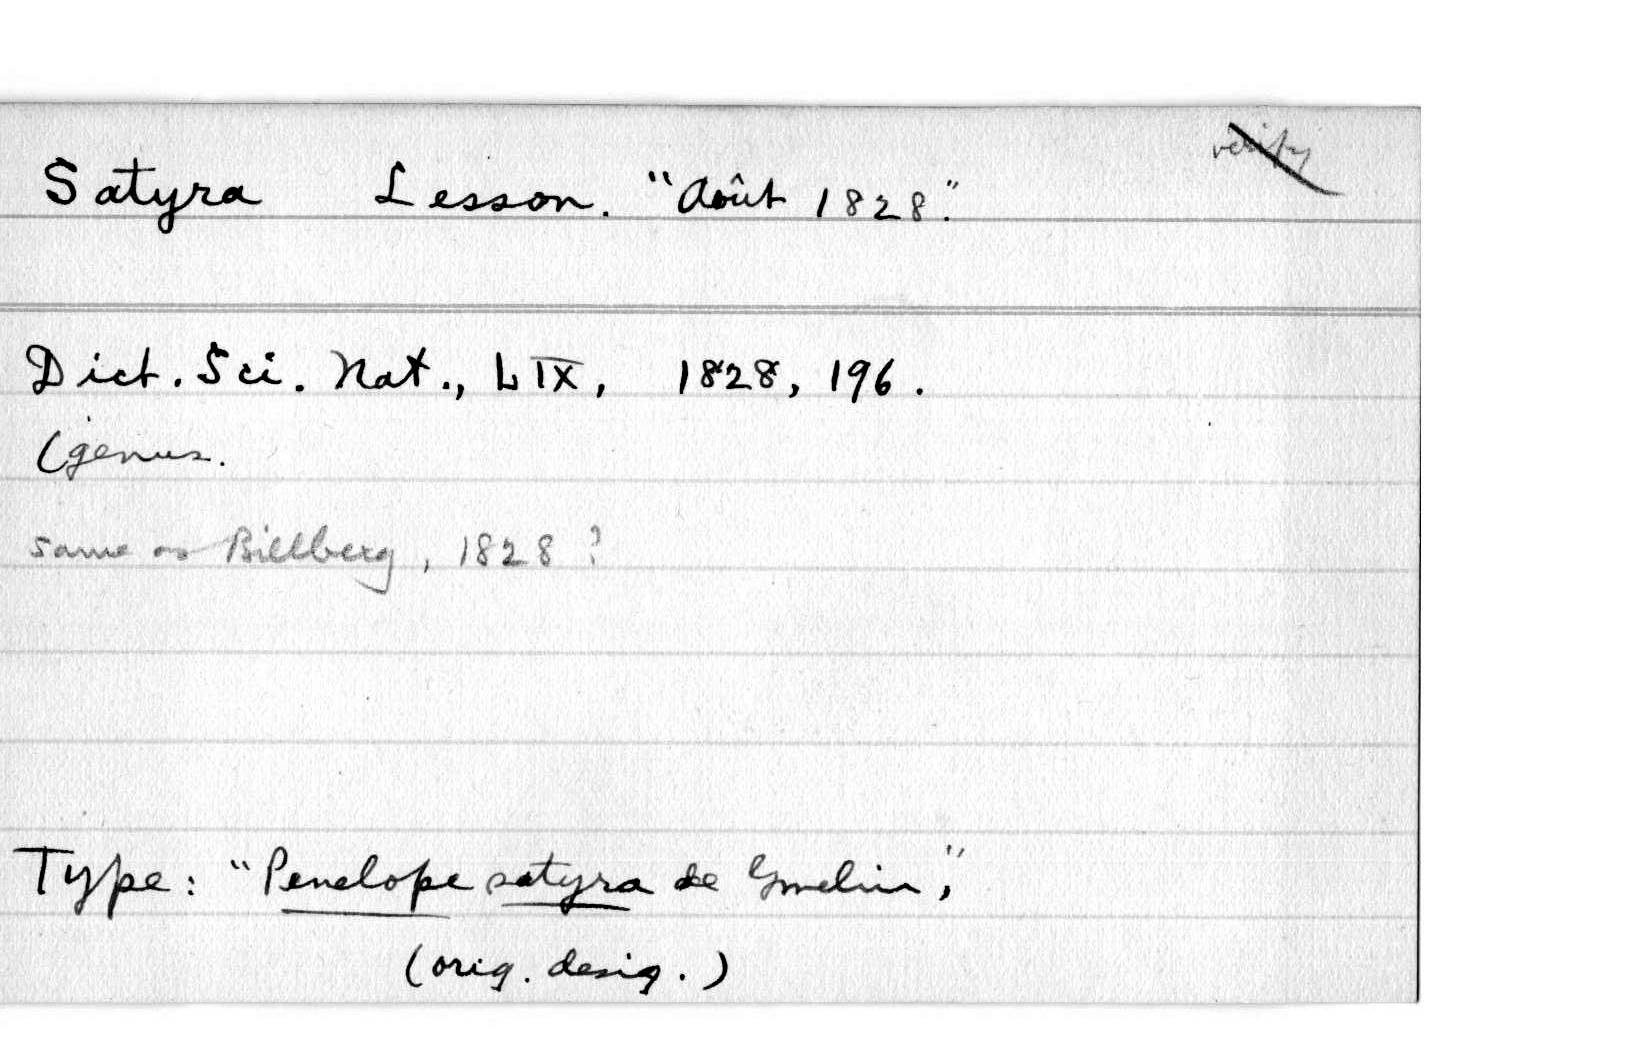 verify
Satyra Lesson. "Août 1828."
Dict. Sci. Nat., LIX, 1828, 196.
(genus.
same as Billberg, 1828 ?
Type: "Penelope satyra de Gmelin,"
(orig. desig.)